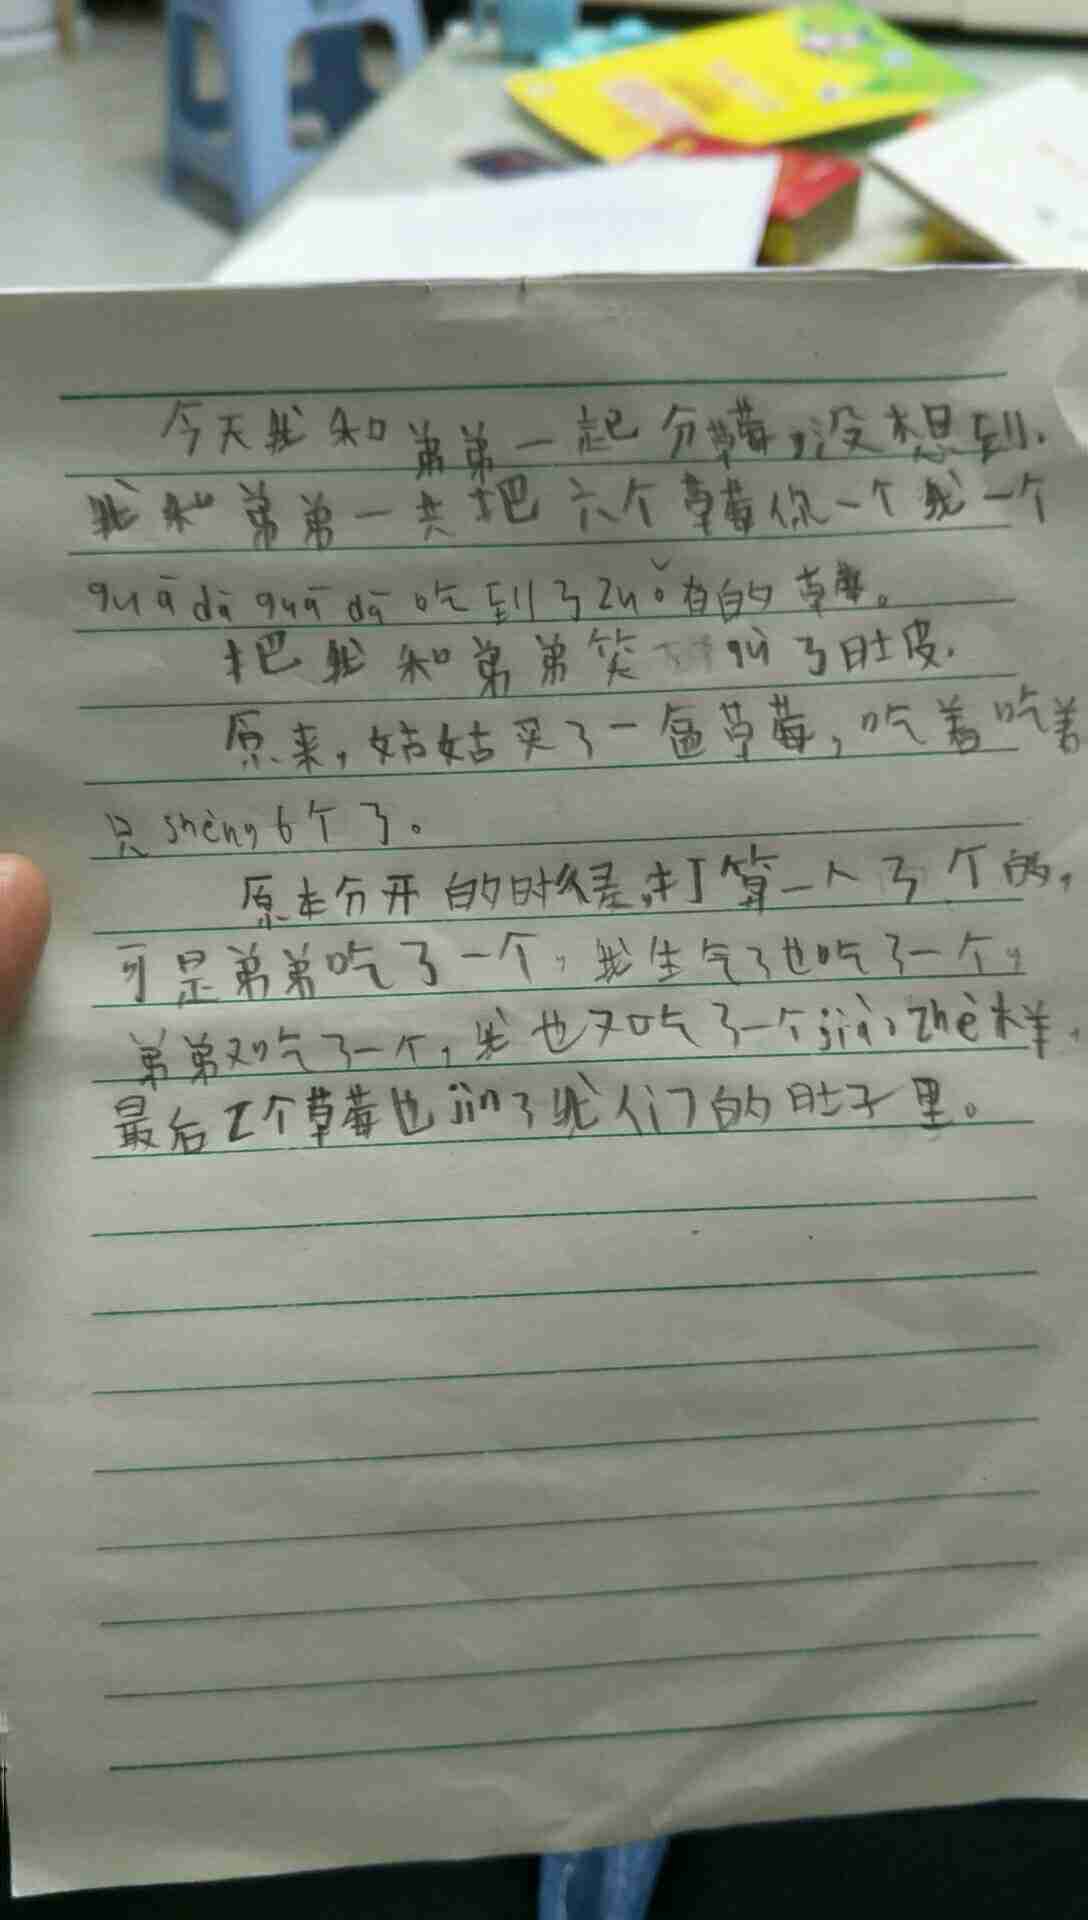 今天我和弟弟一起分草莓,没想到.
我和弟弟一共把六个草莓你一个我一个
guā dā guā dā 吃到了zuǒ有的草莓。
把我和弟弟笑 qù 了肚皮.
原来,姑姑买了一盒草莓,吃着吃着
只 shèng 6个了。
原本分开的时候是,打算一人3个的,
可是弟弟吃了一个,我生气了也吃了一个,
弟弟又吃了一个,我也又吃了一个jiù zhè样,
最后2个草莓也jìn了我们的肚子里。